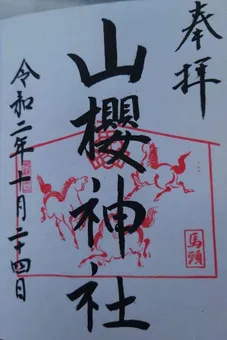 奉拝
山櫻神社
馬頭
令和二年十月二十四日